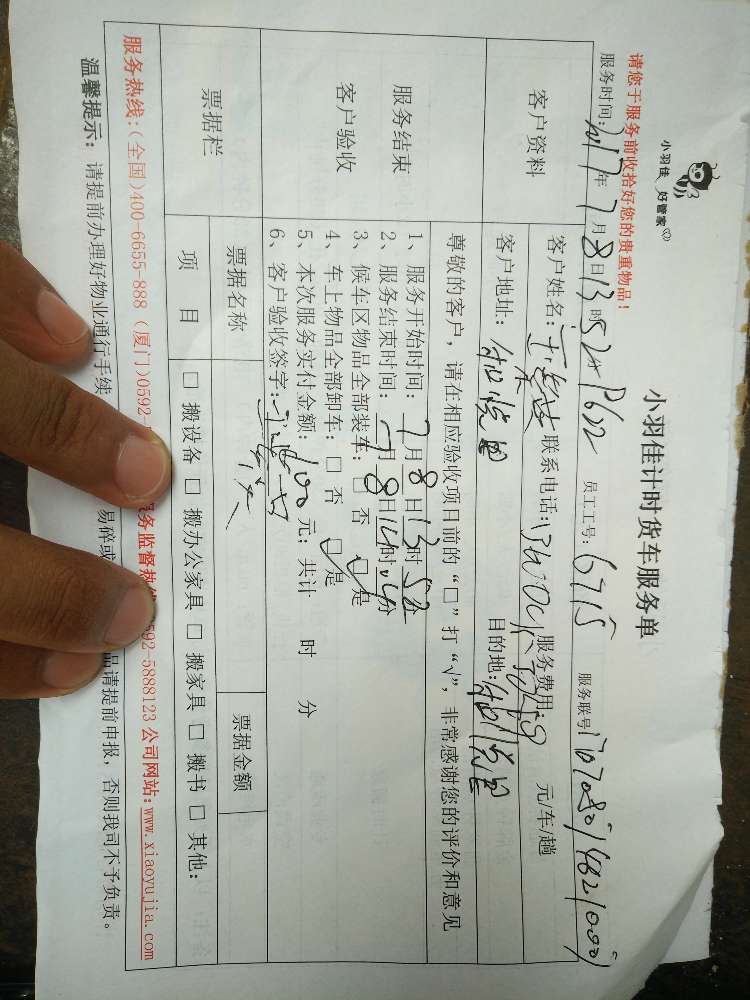 小羽佳 好管家
小羽佳计时货车服务单
请您于服务前收拾好您的贵重物品！
服务时间：2017年7月8日13时52分 员工工号：6715 服务联号
客户资料
客户姓名： 联系电话： 服务费用： 元/车/趟
客户地址：和悦里 目的地：和悦里
尊敬的客户，请在相应验收项目前的“□”打“√”，非常感谢您的评价和意见
服务结束
客户验收
1、服务开始时间：7月8日13时52分
2、服务结束时间：7月8日14时04分
3、候车区物品全部装车：□ 否 ☑ 是
4、车上物品全部卸车：□ 否 ☑ 是
5、本次服务实付金额：100元；共计 时 分
6、客户验收签字：
票据栏
票据名称 票据金额
项 目 □ 搬设备 □ 搬办公家具 □ 搬家具 □ 搬书 □ 其他：
服务热线：(全国)400-6655-888 (厦门)0592- 服务监督热线 0592-5888123 公司网站：www.xiaoyujia.com
温馨提示：请提前办理好物业通行手续 易碎或 品请提前申报，否则我司不予负责。